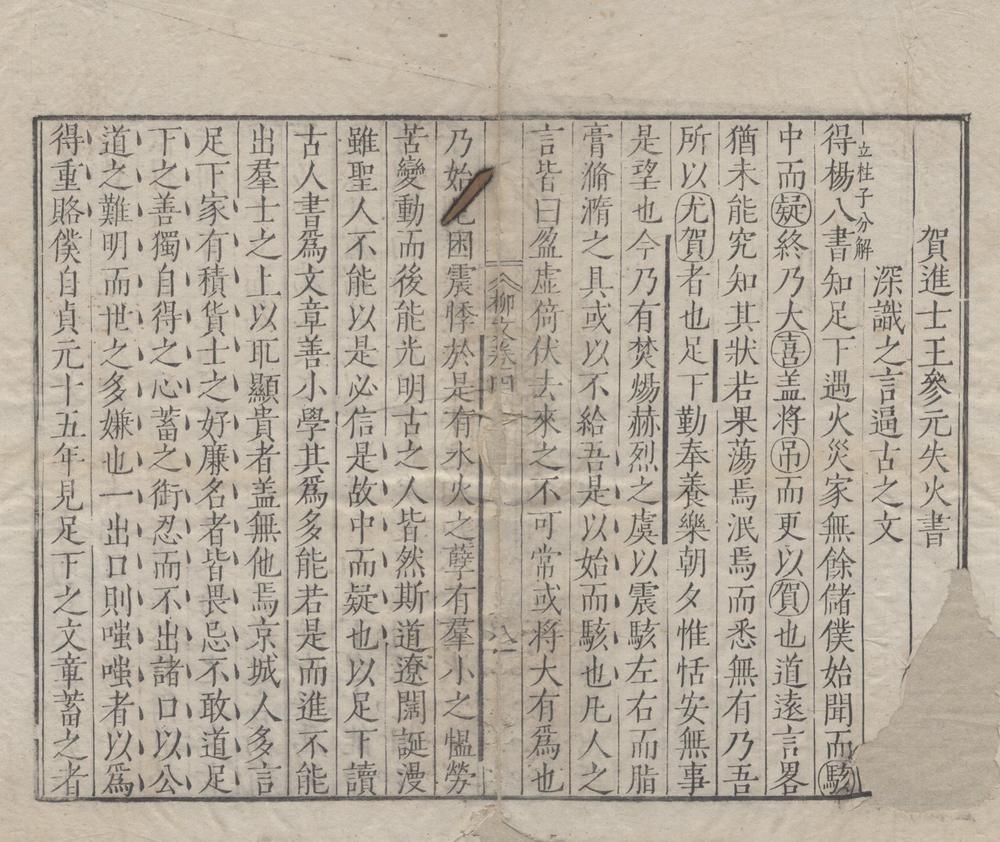 賀進士王參元失火書
深識之言逼古之文
立柱子分解
得楊八書知足下遇火災家無餘儲僕始聞而駭
中而疑終乃大喜盖將吊而更以賀也道遠言畧
猶未能究知其狀若果蕩焉泯焉而悉無有乃吾
所以尤賀者也足下勤奉養樂朝夕惟恬安無事
是望也今乃有焚煬赫烈之虞以震駭左右而脂
膏滫瀡之具或以不給吾是以始而駭也凡人之
言皆曰盈虛倚伏去來之不可常或將大有爲也
柳文卷四 八
乃始困震悸於是有水火之孽有羣小之慍勞
苦變動而後能光明古之人皆然斯道遼闊誕漫
雖聖人不能以是必信是故中而疑也以足下讀
古人書爲文章善小學其爲多能若是而進不能
出羣士之上以取顯貴者盖無他焉京城人多言
足下家有積貨士之好廉名者皆畏忌不敢道足
下之善獨自得之心蓄之銜忍而不出諸口以公
道之難明而世之多嫌也一出口則嗤嗤者以爲
得重賂僕自貞元十五年見足下之文章蓄之者